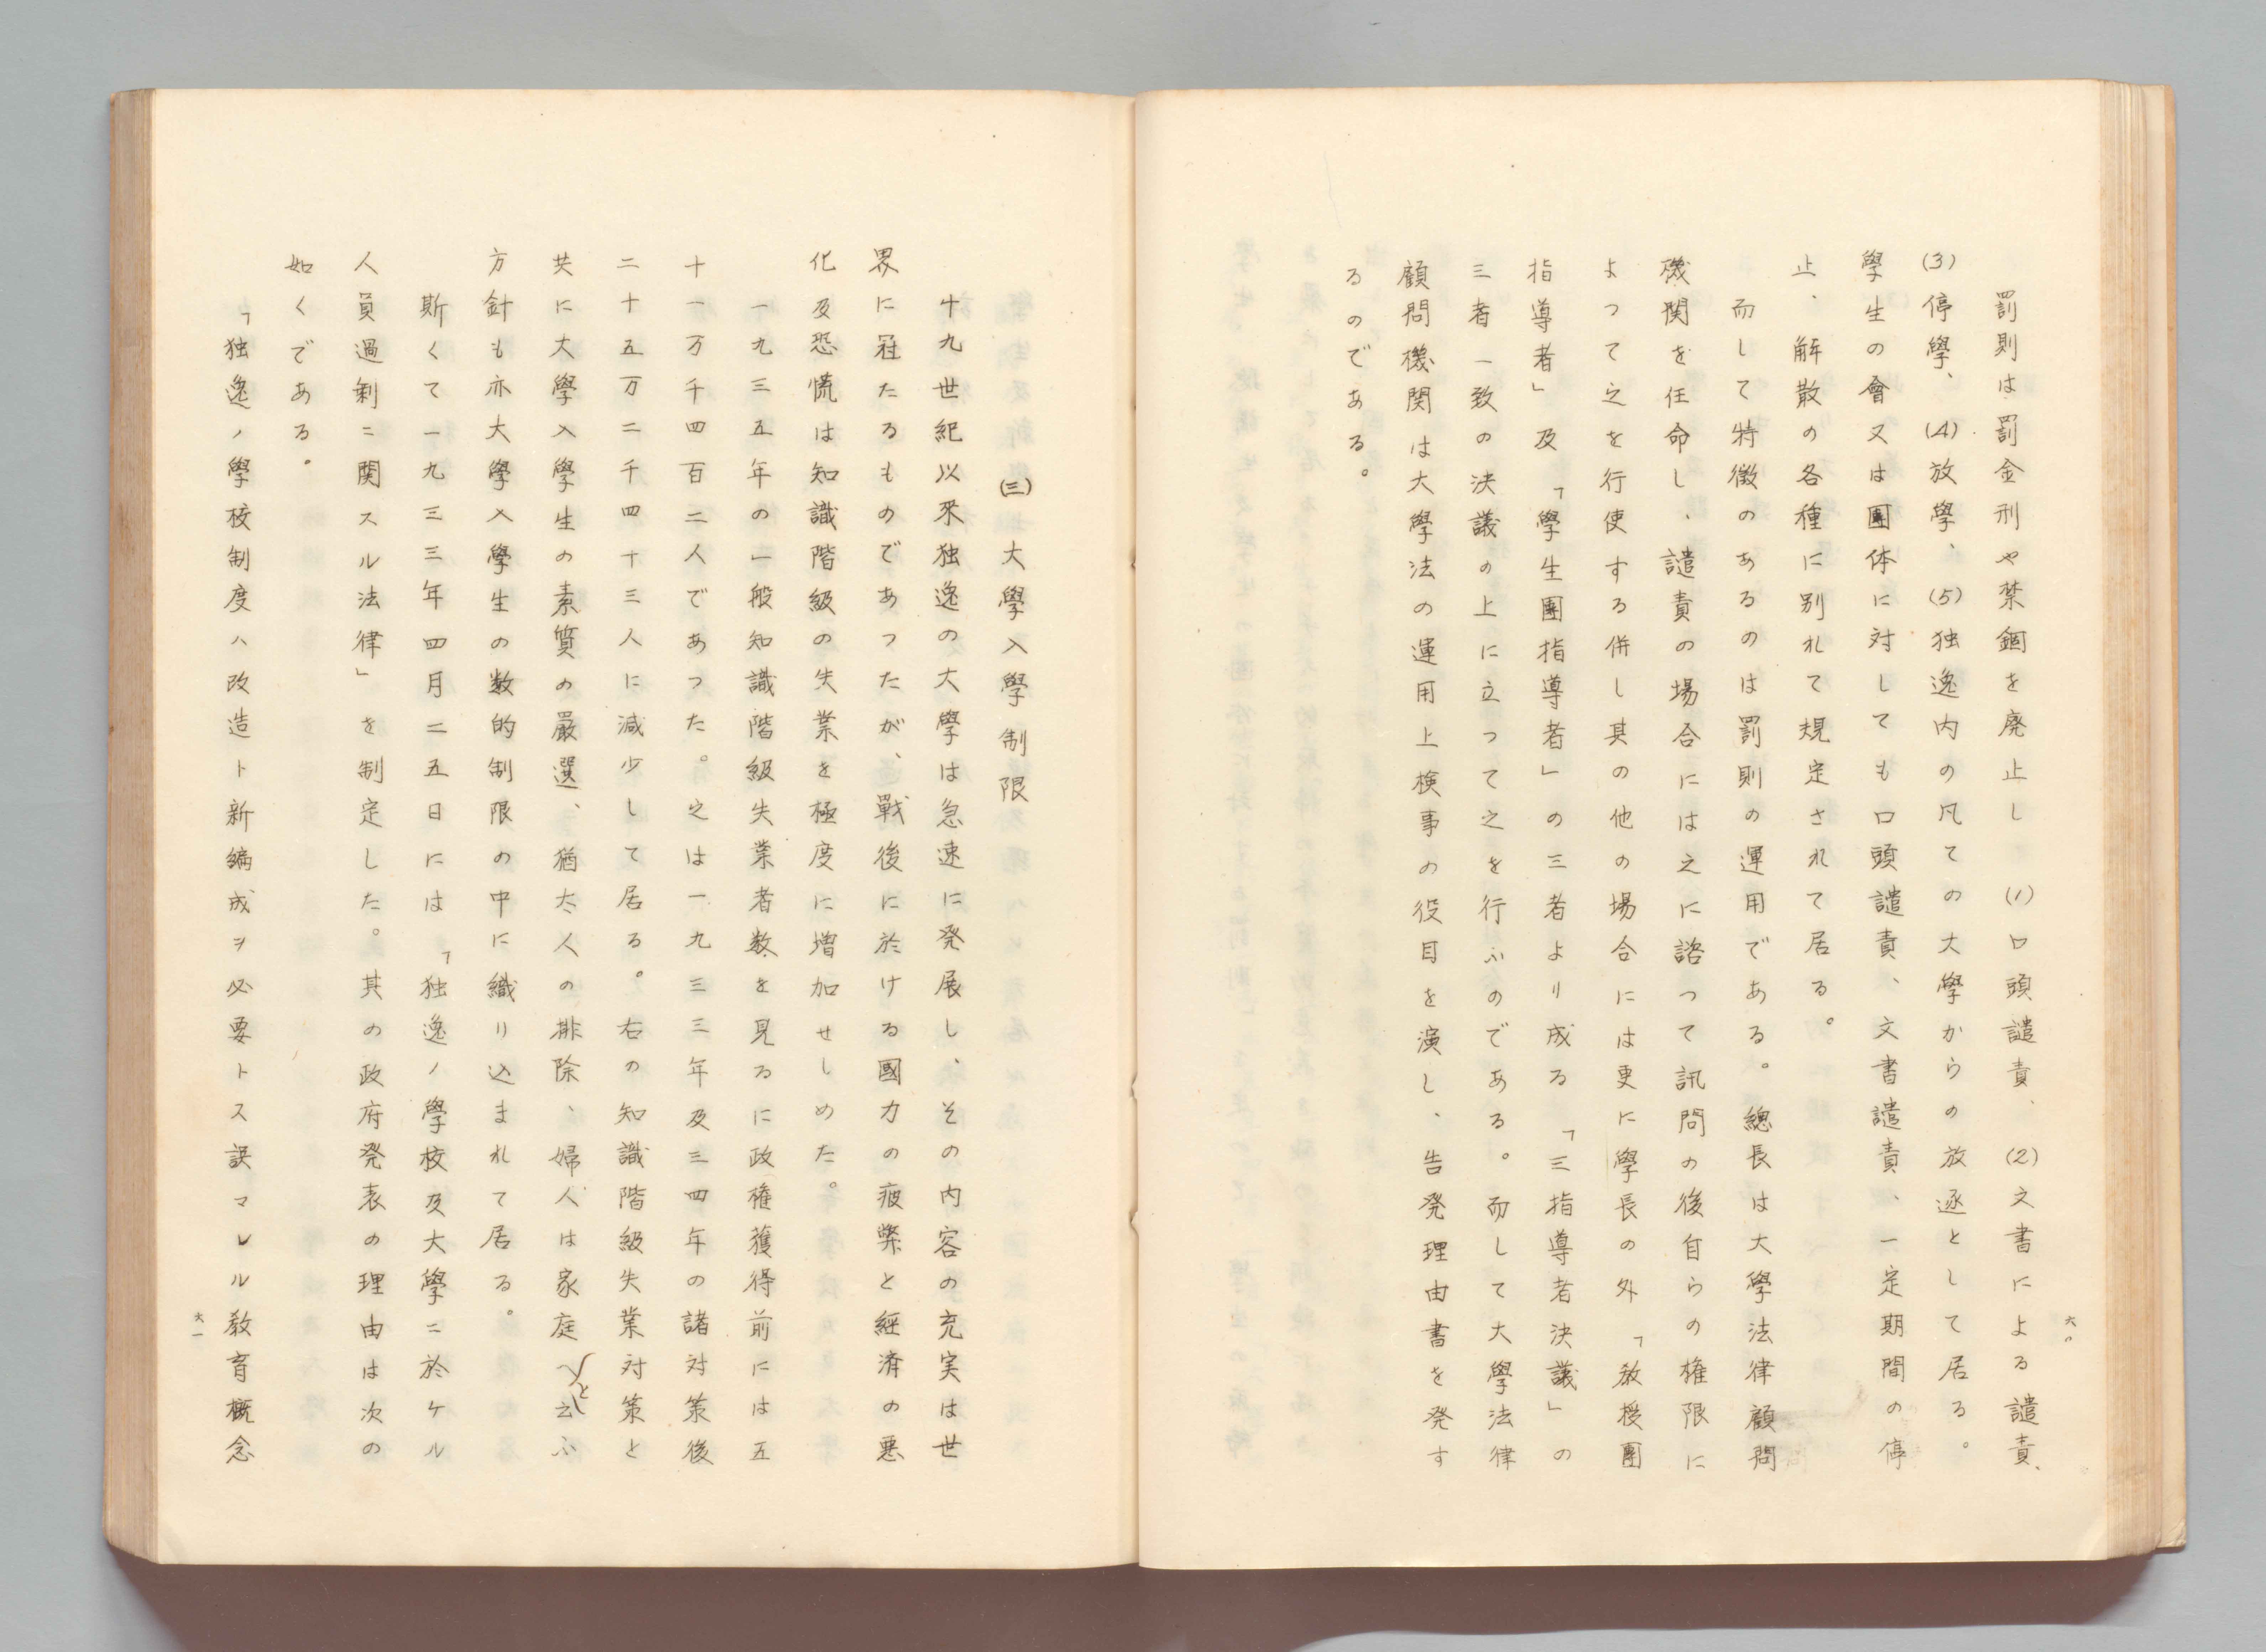 六〇
罰則は罰金刑や禁錮を廃止して (1)口頭譴責、(2)文書による譴責、
(3)停學、(4)放學、(5)独逸内の凡ての大學からの放逐として居る。
學生の會又は團体に対しても口頭譴責、文書譴責、一定期間の停
止、解散の各種に別れて規定されて居る。
而して特徴のあるのは罰則の運用である。總長は大學法律顧問
機関を任命し、譴責の場合には之に諮つて訊問の後自らの権限に
よつて之を行使する併し其の他の場合には更に學長の外「教授團
指導者」及「學生團指導者」の三者より成る「三指導者決議」の
三者一致の決議の上に立つて之を行ふのである。而して大學法律
顧問機関は大學法の運用上検事の役目を演し、告発理由書を発す
るのである。
(三)大學入學制限
十九世紀以来独逸の大學は急速に発展し、その内容の充実は世
界に冠たるものであつたが、戰後に於ける國力の疲弊と経済の悪
化及恐慌は知識階級の失業を極度に増加せしめた。
一九三五年の一般知識階級失業者数を見るに政権獲得前には五
十一万千四百二人であつた。之は一九三三年及三四年の諸対策後
二十五万二千四十三人に減少して居る。右の知識階級失業対策と
共に大學入學生の素質の厳選、猶太人の排除、婦人は家庭へと云ふ
方針も亦大學入學生の数的制限の中に織り込まれて居る。
斯くて一九三三年四月二五日には「独逸ノ學校及大學ニ於ケル
人員過剰ニ関スル法律」を制定した。其の政府発表の理由は次の
如くである。
「独逸ノ學校制度ハ改造ト新編成ヲ必要トス誤マレル教育概念
六一